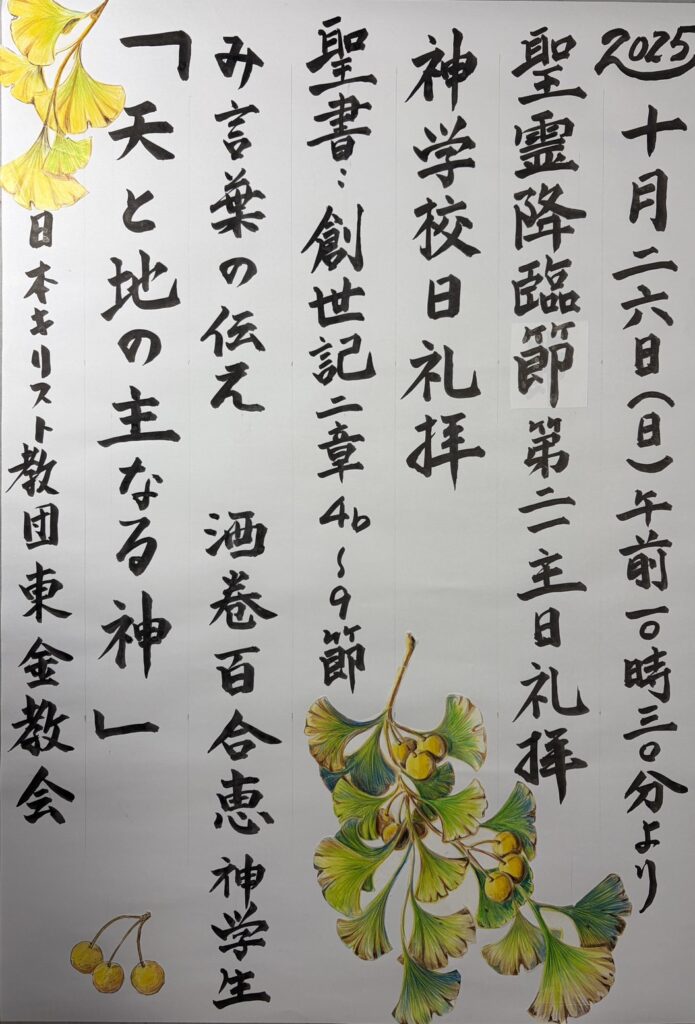 2025
十月二六日（日）午前一〇時三〇分より
聖霊降臨節第二一主日礼拝
神学校日礼拝
聖書：創世記二章4b〜9節
み言葉の伝え 酒巻百合恵神学生
「天と地の主なる神」
日本キリスト教団東金教会